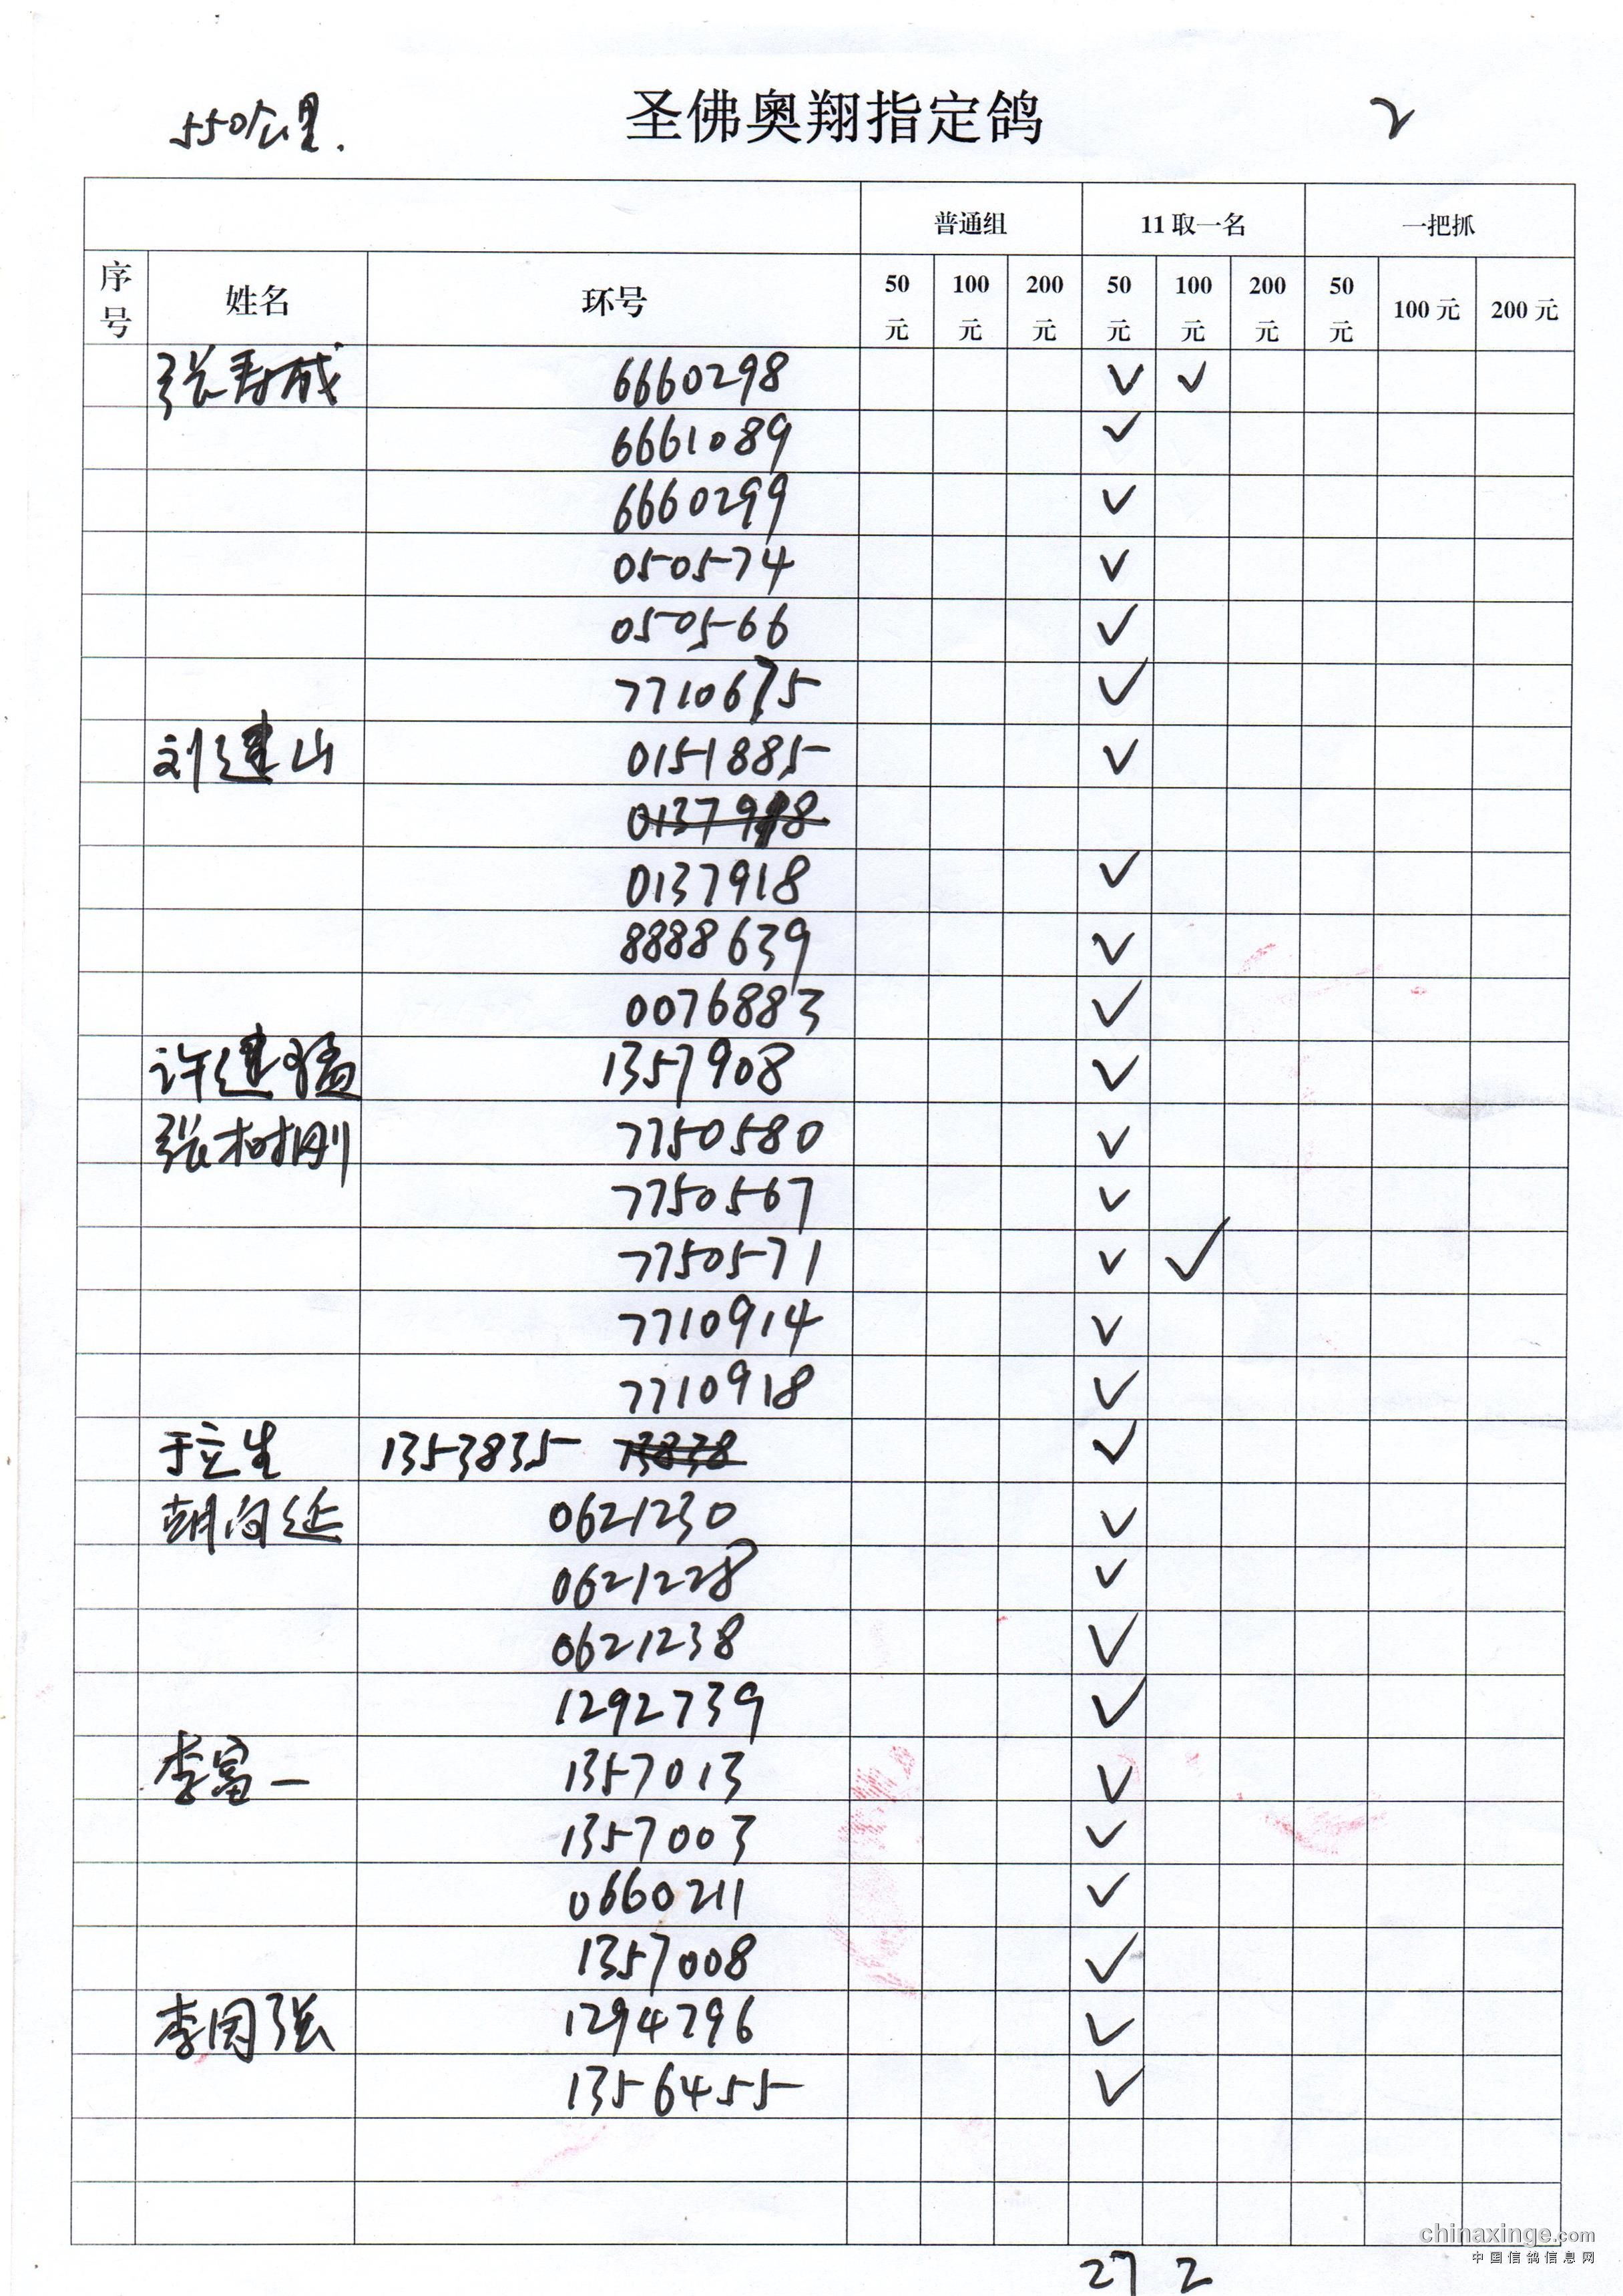 550公里.
圣佛奥翔指定鸽
2
普通组 11取一名 一把抓
序号 姓名 环号 50元 100元 200元 50元 100元 200元 50元 100元 200元
张寿成 6660298 ✓ ✓
6661089 ✓
6660299 ✓
050574 ✓
050566 ✓
7710675 ✓
刘建山 0151885 ✓
0137918 ✓
8888639 ✓
0076883 ✓
许建猛 1357908 ✓
张树刚 7750580 ✓
7750567 ✓
7750571 ✓ ✓
7710914 ✓
7710918 ✓
于立生 1353835 ✓
胡向延 0621230 ✓
0621228 ✓
0621238 ✓
1292739 ✓
李富一 1357013 ✓
1357003 ✓
0660211 ✓
1357008 ✓
李国强 1294296 ✓
1356455 ✓
27 2
chinaxinge.com
中国信鸽信息网